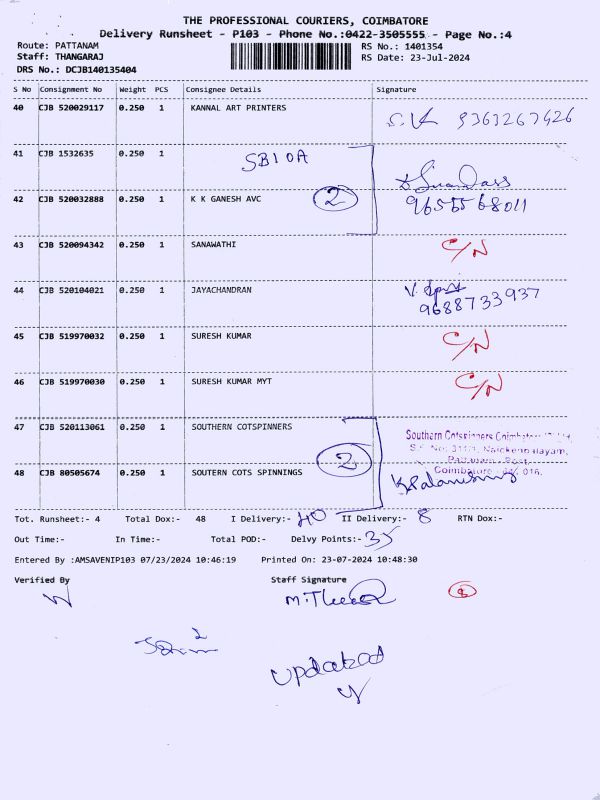 THE PROFESSIONAL COURIERS, COIMBATORE
Delivery Runsheet - P103 - Phone No.:0422-3505555 - Page No.:4
Route: PATTANAM RS No.: 1401354
Staff: THANGARAJ RS Date: 23-Jul-2024
DRS No.: DCJB140135404
S No Consignment No Weight PCS Consignee Details Signature
40 CJB 520029117 0.250 1 KANNAL ART PRINTERS
S.K 9361267426
41 CJB 1532635 0.250 1
SBIOA
42 CJB 520032888 0.250 1 K K GANESH AVC 2
9655568011
43 CJB 520094342 0.250 1 SANAWATHI C/N
44 CJB 520104021 0.250 1 JAYACHANDRAN V.
9688733937
45 CJB 519970032 0.250 1 SURESH KUMAR C/N
46 CJB 519970030 0.250 1 SURESH KUMAR MYT C/N
47 CJB 520113061 0.250 1 SOUTHERN COTSPINNERS
Southern Cotspinners Coimbatore
2
48 CJB 80505674 0.250 1 SOUTERN COTS SPINNINGS Coimbatore
Tot. Runsheet:- 4 Total Dox:- 48 I Delivery:- 40 II Delivery:- 8 RTN Dox:-
Out Time:- In Time:- Total POD:- Delvy Points:- 35
Entered By :AMSAVENIP103 07/23/2024 10:46:19 Printed On: 23-07-2024 10:48:30
Verified By Staff Signature
8
2
updated